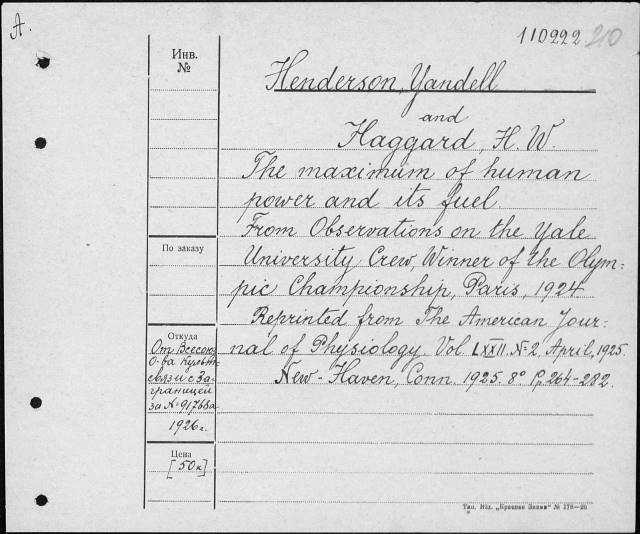 А.
110222 210
Инв.
№
Henderson, Yandell
and
Haggard, H. W.
The maximum of human
power and its fuel.
From Observations on the Yale
University Crew, Winner of the Olym-
pic Championship, Paris, 1924.
Reprinted from The American Jour-
nal of Physiology. Vol. LXXII. № 2, April, 1925.
New-Haven, Conn. 1925. 8° Pp. 264-282.
По заказу
Откуда
От Всесоюз.
О-ва Культ.
связи с За-
границей
за № 91768а
1926 г.
Цена
[50к]
Тип. Изд. „Красное Знамя“ № 178—26